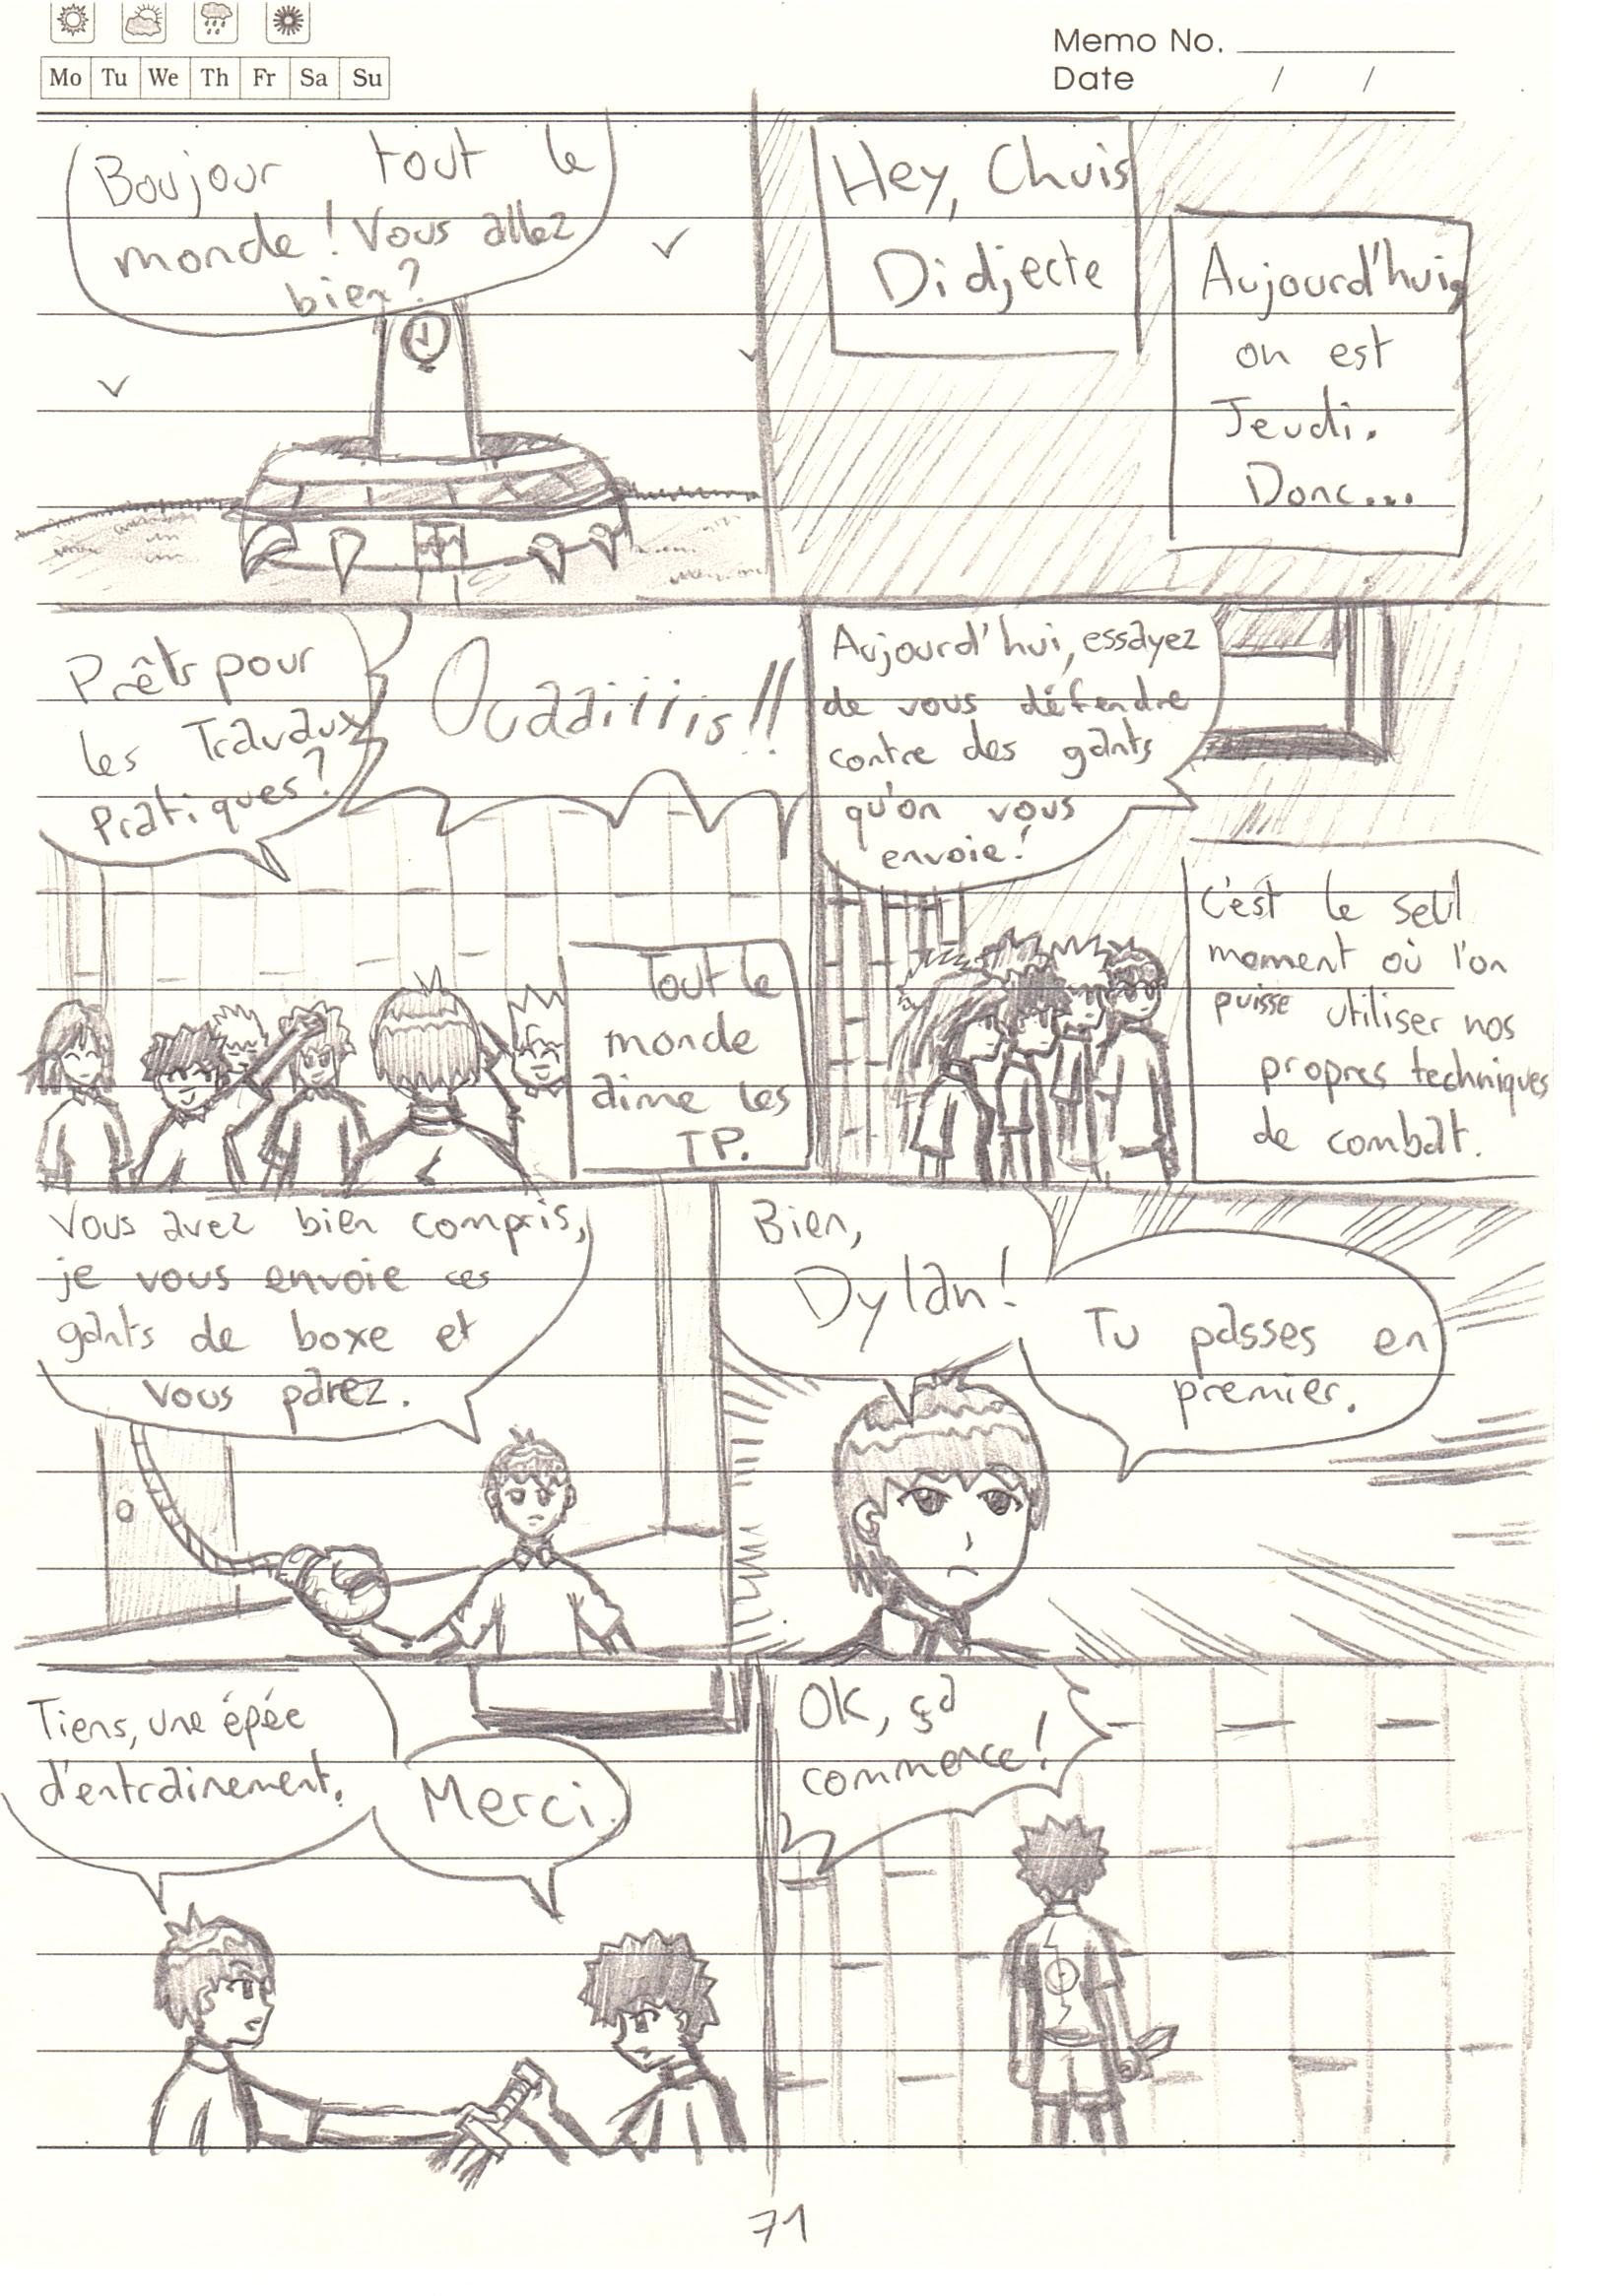 Mo Tu We Th Fr Sa Su
Memo No.
Date / /
Boujour tout le
monde ! Vous allez
bien ?
Hey, Chuis
Didjecte
Aujourd'hui,
on est
Jeudi.
Donc...
Prêts pour
les Travaux
pratiques ?
Ouaaiiiis !!
Tout le
monde
aime les
TP.
Aujourd'hui, essayez
de vous défendre
contre des gants
qu'on vous
envoie !
C'est le seul
moment où l'on
puisse utiliser nos
propres techniques
de combat.
Vous avez bien compris,
je vous envoie ces
gants de boxe et
vous parez.
Bien,
Dylan !
Tu passes en
premier.
Tiens, une épée
d'entrainement.
Merci.
OK, ça
commence !
71